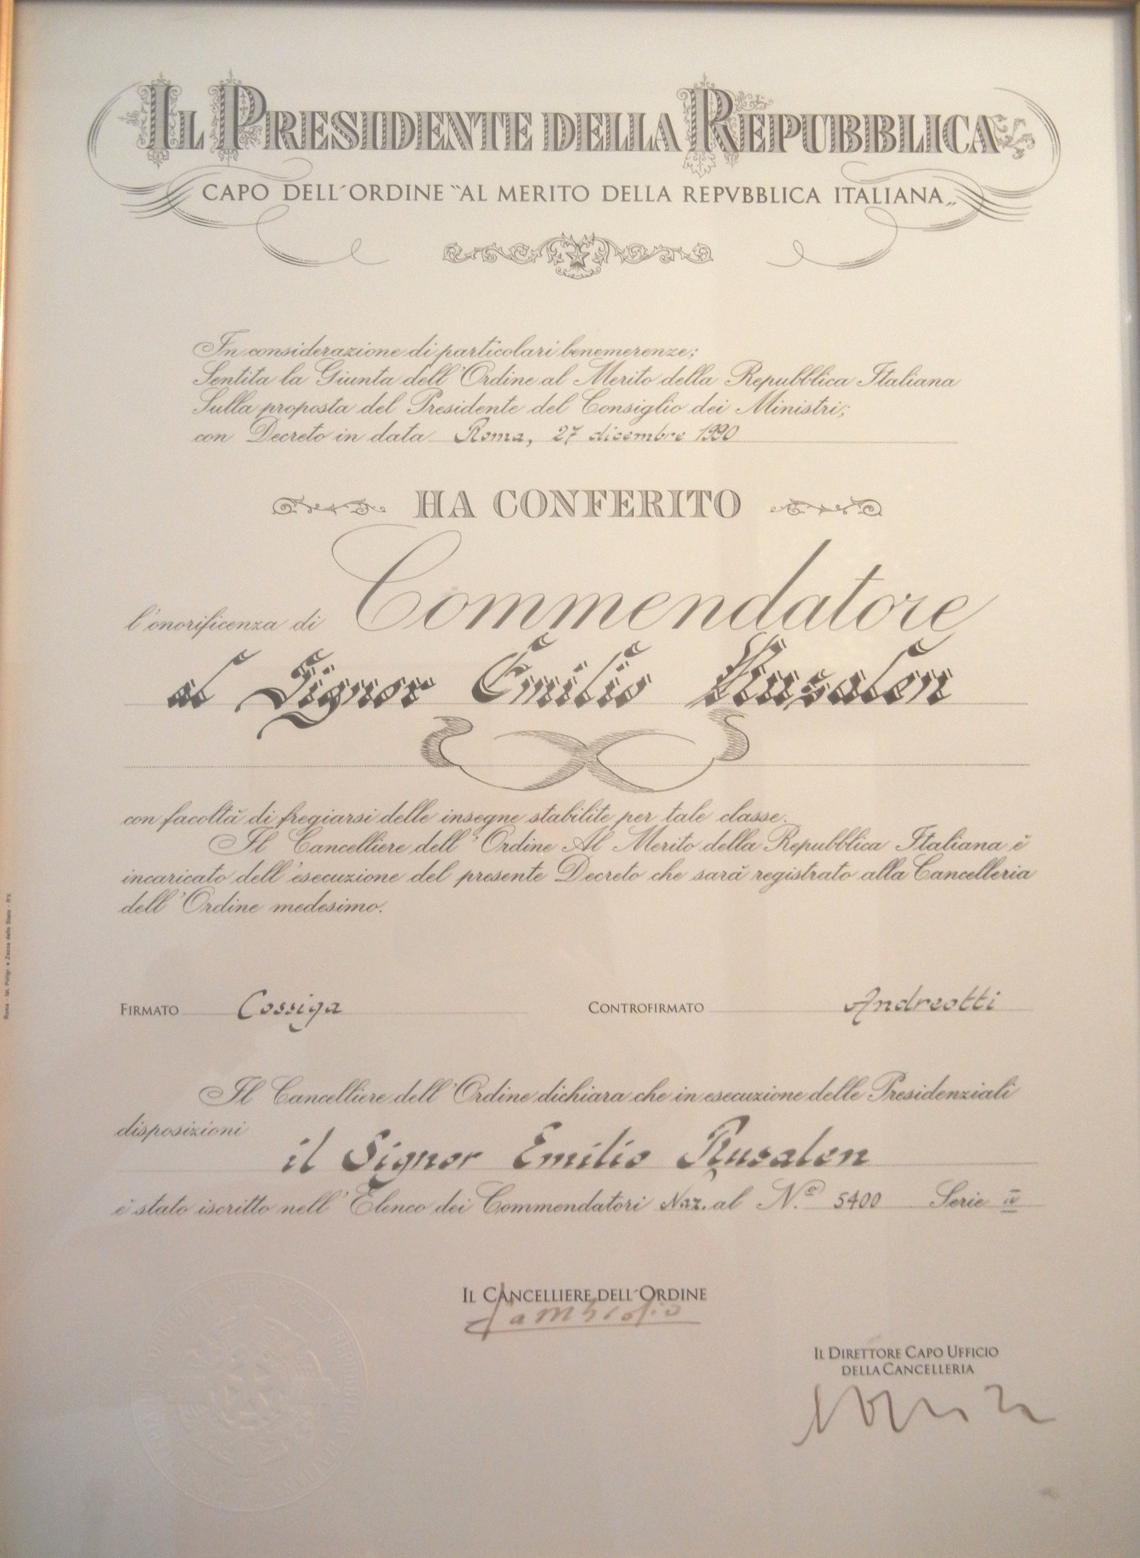 IL PRESIDENTE DELLA REPUBBLICA
CAPO DELL'ORDINE "AL MERITO DELLA REPVBBLICA ITALIANA„
In considerazione di particolari benemerenze;
Sentita la Giunta dell'Ordine al Merito della Repubblica Italiana
Sulla proposta del Presidente del Consiglio dei Ministri;
con Decreto in data Roma, 27 dicembre 1990
HA CONFERITO
l'onorificenza di Commendatore
al Signor Emilio Rusalen
con facoltà di fregiarsi delle insegne stabilite per tale classe.
Il Cancelliere dell'Ordine Al Merito della Repubblica Italiana è
incaricato dell'esecuzione del presente Decreto che sarà registrato alla Cancelleria
dell'Ordine medesimo.
FIRMATO Cossiga CONTROFIRMATO Andreotti
Il Cancelliere dell'Ordine dichiara che in esecuzione delle Presidenziali
disposizioni il Signor Emilio Rusalen
è stato iscritto nell'Elenco dei Commendatori Naz. al N.o 5400 Serie IV
IL CANCELLIERE DELL'ORDINE
IL DIRETTORE CAPO UFFICIO
DELLA CANCELLERIA